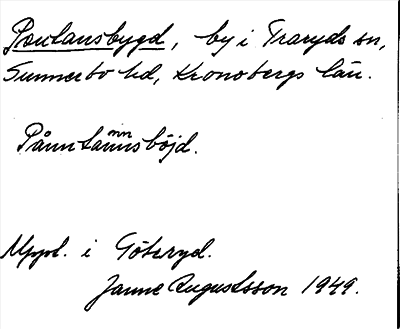 Poulansbygd, by i Traryds sn,
Sunnerbo hd, Kronobergs län.
nn
Pånnlannsböjd.
Uppt. i Göteryd.
Janne Augustsson 1949.